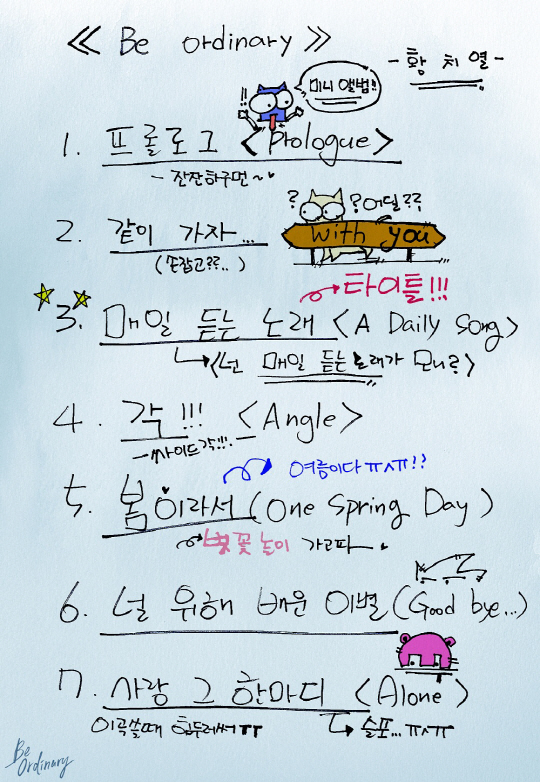 ≪ Be ordinary ≫
- 황 치 열 -
!! 미니 앨범!!
1. 프롤로그 <Prologue>
- 잔잔하구먼~♥
2. 같이 가자... ? ?어딜??
With you
(손잡고??..)
타이틀!!!
3. 매일 듣는 노래 <A Daily Song>
<넌 매일 듣는 노래가 모니?>
4. 각 !!! <Angle>
-싸이드각!!!.-
여름이다 ㅠㅅㅠ!?
5. 봄이라서 (One Spring Day)
벚꽃놀이 가고파~♥
6. 널 위해 배운 이별 (Good bye...)
7. 사랑 그 한마디 <Alone>
이곡쓸때 힘두러써ㅠ 슬포...ㅠㅅㅠ
Be
Ordinary